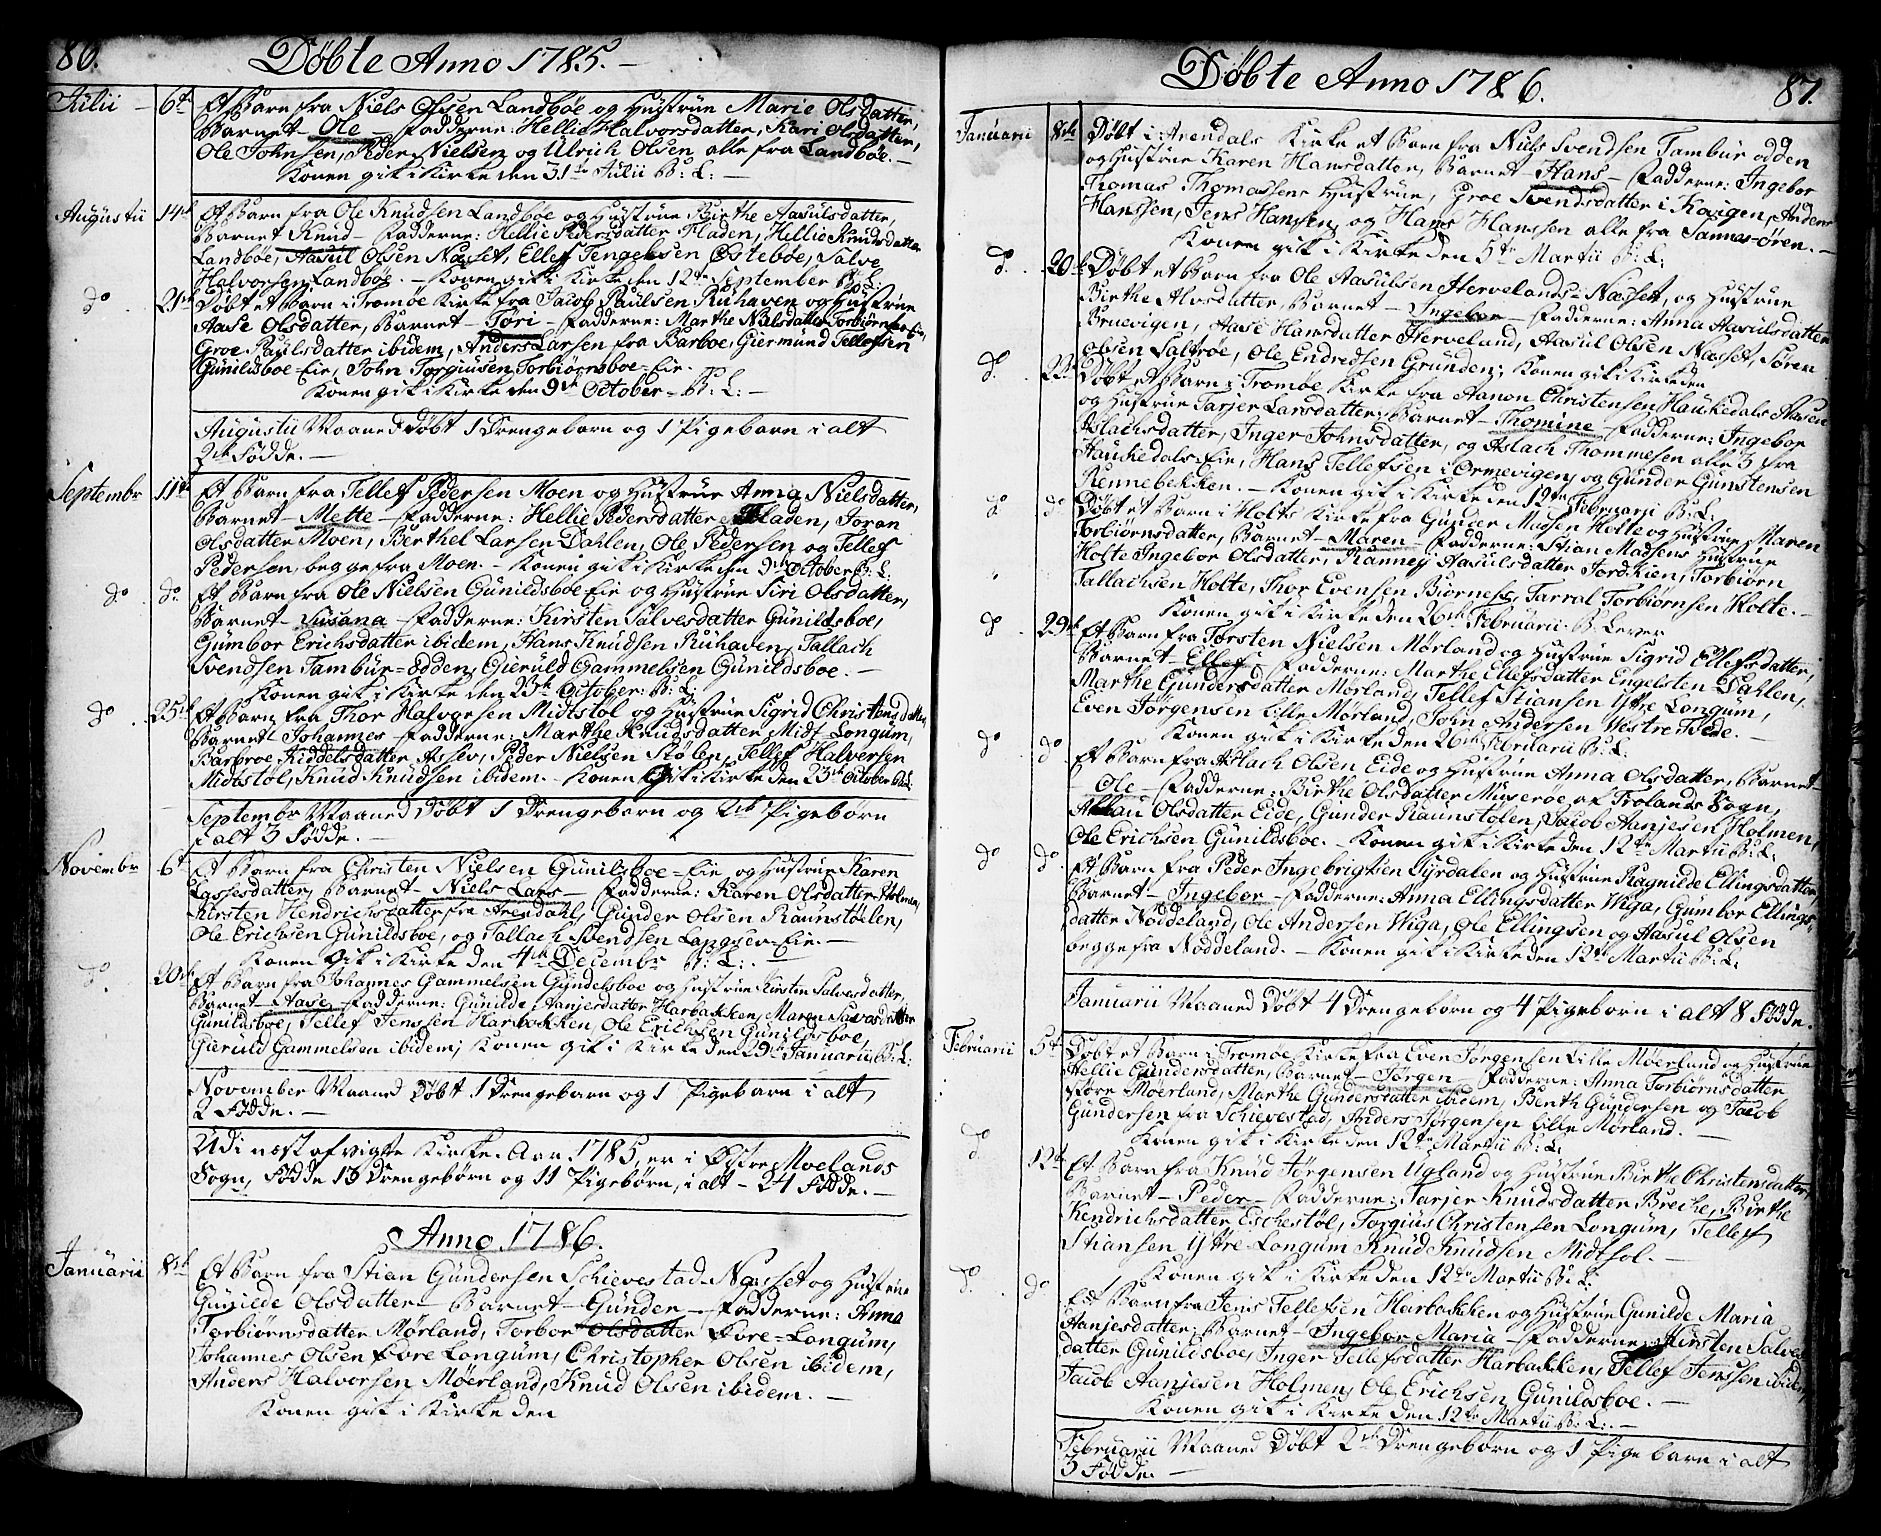 86.
Döbte Anno 1785.
Julii 6te Et Barn fra Niels Olsen Landböe og Hustrue Marie Olsdatter,
Barnet Ole Fadderne: Hellie Halvorsdatter, Kari Olsdatter,
Ole Johnsen, Peder Nielsen og Ulrich Olsen alle fra Landböe.
Konen gik i Kirke den 31te Julii B: L:
Augustii 14de Et Barn fra Ole Knudsen Landböe og Hustrue Birthe Aasulsdatter,
Barnet Knud Fadderne: Hellie Pedersdatter Fladen, Hellie Knudsdatter
Landböe, Aasul Olsen Næset, Ellef Tengelsen Östeböe, Salve
Halvorsen Landböe. Konen gik i Kirke den 12te September B: L:
do 21de Döbt et Barn i Tromöe Kirke fra Jacob Paulsen Ruhaven og Hustrue
Aase Olsdatter, Barnet Töri Fadderne: Marthe Nielsdatter
Groe Paulsdatter ibidem, Anders Larsen fra Barboe, Giermund Tellefsen
Gunildsboe-Eie, John Torgiusen Torbiörnsboe-Eie.
Konen gik i Kirke den 9de October B: L:
Augustii Maaned Döbt 1 Drengebarn og 1 Pigebarn i alt
2de Födde.
Septembr 11te Et Barn fra Tellef Pedersen Moen og Hustrue Anna Nielsdatter,
Barnet Mette Fadderne: Hellie Pedersdatter Fladen, Joran
Olsdatter Moen, Berthel Larsen Dahlen, Ole Pedersen og Tellef
Pedersen, begge fra Moen. Konen gik i Kirke den 9de October B: L:
do do Et Barn fra Ole Nielsen Gunildsboe-Eie og Hustrue Siri Olsdatter,
Barnet Susana Fadderne: Kirsten Salvesdatter Gunildsboe,
Gumbor Erichsdatter ibidem, Hans Knudsen Ruhaven, Tallach
Svendsen Tambur=Odden, Gieruld Gammelsen Gunildsboe.
Konen gik i Kirke den 23de October: B: L:
do 25de Et Barn fra Thor Halvorsen Midtstöl og Hustrue Sigrid Christensdatter,
Barnet Johannes Fadderne: Marthe Knudsdatter Midt Longum,
Barbroe Kiddelsdatter Assev, Peder Nielsen Stölen, Tellef Halvorsen
Midtstöl, Knud Knudsen ibidem. Konen gik i Kirke den 23de October B: L:
Septembr Maaned Döbt 1 Drengebarn og 2de Pigebörn
i alt 3 Födde.
Novembr 6te Et Barn fra Christen Nielsen Gunilsboe-Eie og Hustrue Karen
Lassesdatter, Barnet Niels Lars Fadderne: Karen Olsdatter Holmen,
Kirsten Hendrichsdatter fra Arendahl, Gunder Olsen Raunstölen,
Ole Erichsen Gunildsboe, og Tallach Svendsen Eie.
Konen gik i Kirke den 4de Decembr B: L:
do 20de Et Barn fra Johannes Gammelsen Gundelsboe og Hustrue Kirsten Salvesdatter,
Barnet Aase Fadderne: Gunilde Aanjesdatter Harbakken, Maren Salvesdatter
Gunildsboe, Tellef Jenssen Harbakken, Ole Erichsen Gunildsboe,
Gieruld Gammelsen ibidem; Konen gik i Kirke den 29de Januarii B: L:
November Maaned Döbt 1 Drengebarn og 1 Pigebarn i alt
2 Födde.
Udi næst afvigte Kirke-Aar 1785, er i Östre Moelands
Sogn, Födde 13 Drengebörn og 11 Pigebörn, i alt 24 Födde.
Anno 1786.
Januarii 8de Et Barn fra Stian Gundersen Schievestad Næsset og Hustrue
Gunilde Olsdatter Barnet Gunder Fadderne: Anna
Torbiörnsdatter Mörland, Torbor Olsdatter Fore=Longum,
Johannes Olsen Fore Longum, Christopher Olsen ibidem,
Anders Halvorsen Möerland, Knud Olsen ibidem.
Konen gik i Kirke den
Döbte Anno 1786.
87.
Januarii 8de Döbt i Arendals Kirke et Barn fra Niels Svendsen Tambur odden
og Hustrue Karen Hansdatter, Barnet Hans Fadderne: Ingebor
Thomas Thomassens Hustrue, Groe Svendsdatter i Kaigen, Anders
Hanssen, Jens Hanssen og Hans Hanssen alle fra Sannes-ören.
Konen gik i Kirke den 5te Martii B: L:
do 20de Döbt et Barn fra Ole Aasulsen Hervelands=Næsset, og Hustrue
Birthe Alvsdatter Barnet Ingebor Fadderne: Anna Aasulsdatter
Bruevigen, Aase Hansdatter Herveland, Aasul Olsen Næsset, Sören
Olsen Saltröe, Ole Endresen Grunden; Konen gik i Kirke den
do 22de Döbt et Barn i Tromöe Kirke fra Aanon Christensen Haukedals Aasen
og Hustrue Tarjer Larsdatter; Barnet Thomine Fadderne: Ingebor
Aslachsdatter, Inger Johnsdatter, og Aslach Thommesen alle 3 fra
Haukedals-Eie, Hans Tellefsen i Ormevigen, og Gunder Gunstensen
Rennebekken. Konen gik i Kirke den 19te Februarii B: L:
do do Döbt et Barn i Holts Kirke fra Gunder Madsen Holte og Hustrue Maren
Torbiörnsdatter, Barnet Maren Fadderne: Stian Madsens Hustrue
Holte Ingebor Olsdatter, Ranney Aasulsdatter Jordkien, Torbiörn
Tallachsen Holte, Thor Evensen Biörnes, Tarral Torbiörnsen Holte.
Konen gik i Kirke den 26de Februarii B: Lever
do 29de Et Barn fra Torsten Nielsen Mörland og Hustrue Sigrid Ellefsdatter,
Barnet Ellef Fadderne: Marthe Ellefsdatter Engelsten Dahlen,
Marthe Gundersdatter Mörland, Tellef Stiansen Yttre Longum,
Even Jörgensen Lille Mörland, John Andersen Vestre Bede.
Konen gik i Kirke den 26de Februarii B: L:
do do Et Barn fra Aslach Olsen Eide og Hustrue Anna Olsdatter, Barnet
Ole Fadderne: Birthe Olsdatter Myseröe af Trolands Sogn,
Olsdatter Eide, Gunder Raunstolen, Jacob Aanjesen Holmen,
Ole Erichsen Gunildsboe. Konen gik i Kirke den 12te Martii B: L:
do do Et Barn fra Peder Ingebrigtsen Syrdalen og Hustrue Ragnilde Ellingsdatter,
Barnet Ingebor Fadderne: Anna Ellingsdatter Wiga, Gumbor Ellings
datter Nöddeland, Ole Andersen Wiga, Ole Ellingsen og Aasul Olsen
begge fra Nöddeland. Konen gik i Kirke den 12te Martii B: L:
Januarii Maaned Döbt 4 Drengebörn og 4 Pigebörn i alt 8 Födde.
Februarii 5te Döbt et Barn i Tromöe Kirke fra Even Jörgensen Lille Möerland og Hustrue
Hellie Gundersdatter, Barnet Jörgen Fadderne: Anna Torbiörnsdatter
Store Möerland, Marthe Gundersdatter ibidem, Benth Gundersen og Jacob
Gundersen fra Schievestad, Anders Jörgensen Lille Mörland.
Konen gik i Kirke den 12te Martii B: L:
do 12te Et Barn fra Knud Jörgensen Ugland og Hustrue Birthe Christensdatter,
Barnet Peder Fadderne: Tarjer Knudsdatter Breche, Birthe
Hendrichsdatter Eschestöl, Torgius Christensen Longum, Tellef
Stiansen Yttre Longum Knud Knudsen Midtsol.
Konen gik i Kirke den 12te Martii B: L:
do do Et Barn fra Jens Tellefsen Harbakken og Hustrue Gunilde Maria
Aanjesdatter; Barnet Ingebor Maria Fadderne: Kirsten Salves
datter Gunildsboe, Inger Tellefsdatter Harbakken, Tellef Jenssen ibidem,
Jacob Aanjesen Holmen, Ole Erichsen Gunildsboe.
Konen gik i Kirke den 12te Martii B: L:
Februarii Maaned Döbt 2de Drengebörn og 1 Pige barn i alt
3 Födde.